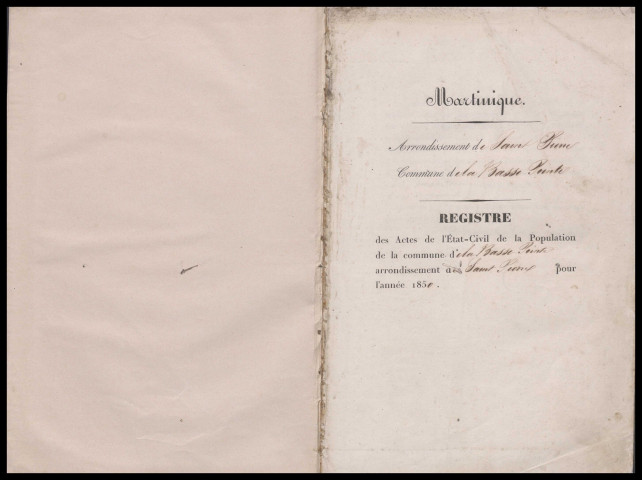 Martinique.
Arrondissement de Saint Pierre
Commune de la Basse Pointe
REGISTRE
des Actes de l'État-Civil de la Population
de la commune de la Basse Pointe
arrondissement de Saint Pierre pour
l'année 185